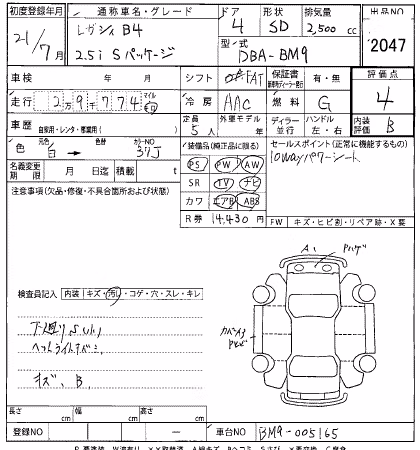 初度登録年月 通称車名・グレード ドア 形状 排気量 出品NO
21/7月 レガシィ B4 4 SD 2,500 cc
2.5i Sパッケージ 型式 DBA-BM9 2047
車検 年 月 シフト FAT 保証書 有・無 評価点
走行 2万9千774 マイル km 冷房 AAC 燃料 G 4
車歴 自家用・レンタ・事業用( ) 定員 5人 外車モデル 年 ディーラー 並行 ハンドル 左・右 内装評価 B
色 白 → 色替 カラーNO 37J 装備品(純正品に限る) セールスポイント(正常に機能するもの)
PS PW AW 10wayパワーシート
名義変更期限 月 日迄 積載 t SR TV ナビ
注意事項(欠品・修復・不具合箇所および状態) カワ エアB ABS
R券 14,430円 FW キズ・ヒビ割・リペア跡・X要
検査員記入 内装 キズ・汚れ・コゲ・穴・スレ・キレ
A1
下廻りSUり
ヘットライトキズミ
キズ、B
長さ cm 幅 cm 高さ cm
登録NO ー 車台NO BM9-005165